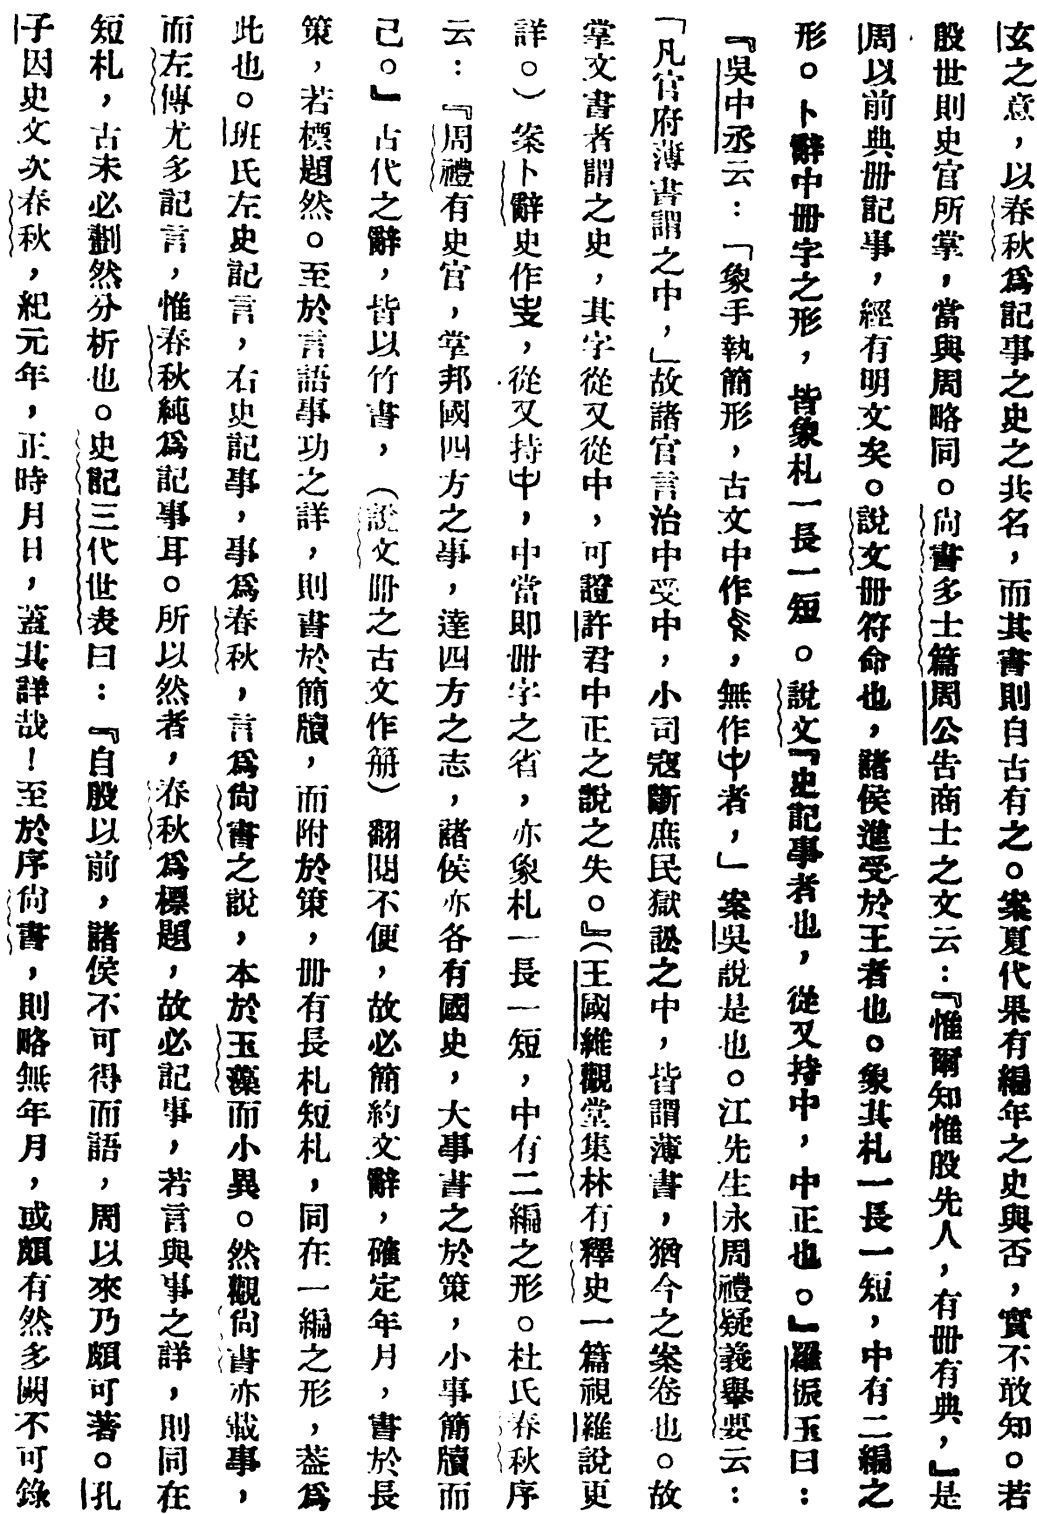 玄之意，以春秋爲記事之史之共名，而其書則自古有之。案夏代果有編年之史與否，實不敢知。若
殷世則史官所掌，當與周略同。尙書多士篇周公告商士之文云：『惟爾知惟殷先人，有冊有典，』是
周以前典冊記事，經有明文矣。說文冊符命也，諸侯進受於王者也。象其札一長一短，中有二編之
形。卜辭中冊字之形，皆象札一長一短。說文『史記事者也，從又持中，中正也。』羅振玉曰：
『吳中丞云：「象手執簡形，古文中作，無作者，」案吳說是也。江先生永周禮疑義舉要云：
「凡官府薄書謂之中，」故諸官言治中受中，小司寇斷庶民獄訟之中，皆謂薄書，猶今之案卷也。故
掌文書者謂之史，其字從又從中，可證許君中正之說之失。』（王國維觀堂集林有釋史一篇視羅說更
詳。）案卜辭史作，從又持，中當即冊字之省，亦象札一長一短，中有二編之形。杜氏春秋序
云：『周禮有史官，掌邦國四方之事，達四方之志，諸侯亦各有國史，大事書之於策，小事簡牘而
已。』古代之辭，皆以竹書，（說文冊之古文作𠕋）翻閱不便，故必簡約文辭，確定年月，書於長
策，若標題然。至於言語事功之詳，則書於簡牘，而附於策，冊有長札短札，同在一編之形，葢爲
此也。班氏左史記言，右史記事，事爲春秋，言爲尙書之說，本於玉藻而小異。然觀尙書亦載事，
而左傳尤多記言，惟春秋純爲記事耳。所以然者，春秋爲標題，故必記事，若言與事之詳，則同在
短札，古未必劃然分析也。史記三代世表曰：『自殷以前，諸侯不可得而語，周以來乃頗可著。孔
子因史文次春秋，紀元年，正時月日，蓋其詳哉！至於序尙書，則略無年月，或頗有然多闕不可錄